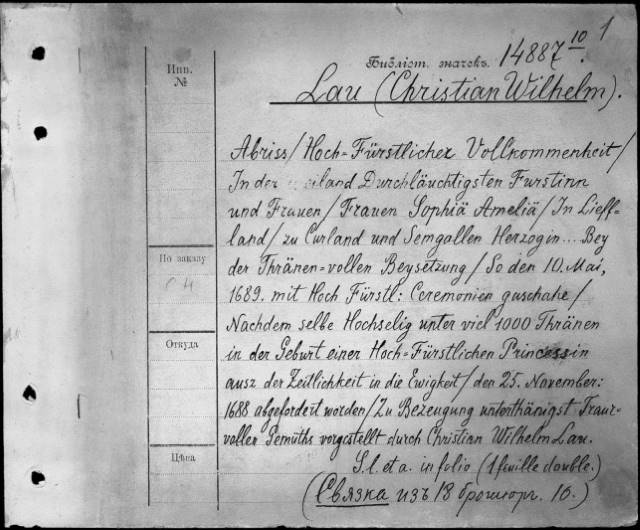 1
Инв.
№
Библіот. значекъ. 14887 10.
Lau (Christian Wilhelm).
Abriss / Hoch=Fürstlicher Vollkommenheit /
In der weiland Durchläuchtigsten Furstinn
und Frauen / Frauen Sophiä Ameliä / In Lieff-
land / zu Curland und Semgallen Herzogin... Bey
der Thränen=vollen Beysetzung / So den 10. Mai,
1689. mit Hoch Fürstl: Ceremonien guschahe /
Nachdem selbe Hochselig unter viel 1000 Thränen
in der Geburt einer Hoch=Fürstlichen Princessin
ausz der Zeitlichkeit in die Ewigkeit / den 25. November:
1688 abgefordert worden / Zu Bezeugung unterthänigst Traur-
voller Gemüths vorgestellt durch Christian Wilhelm Lau.
S. l. et a. in folio (1 feuille double.)
(Связка изъ 18 брошюр. 10.)
По заказу
Откуда
Цѣна